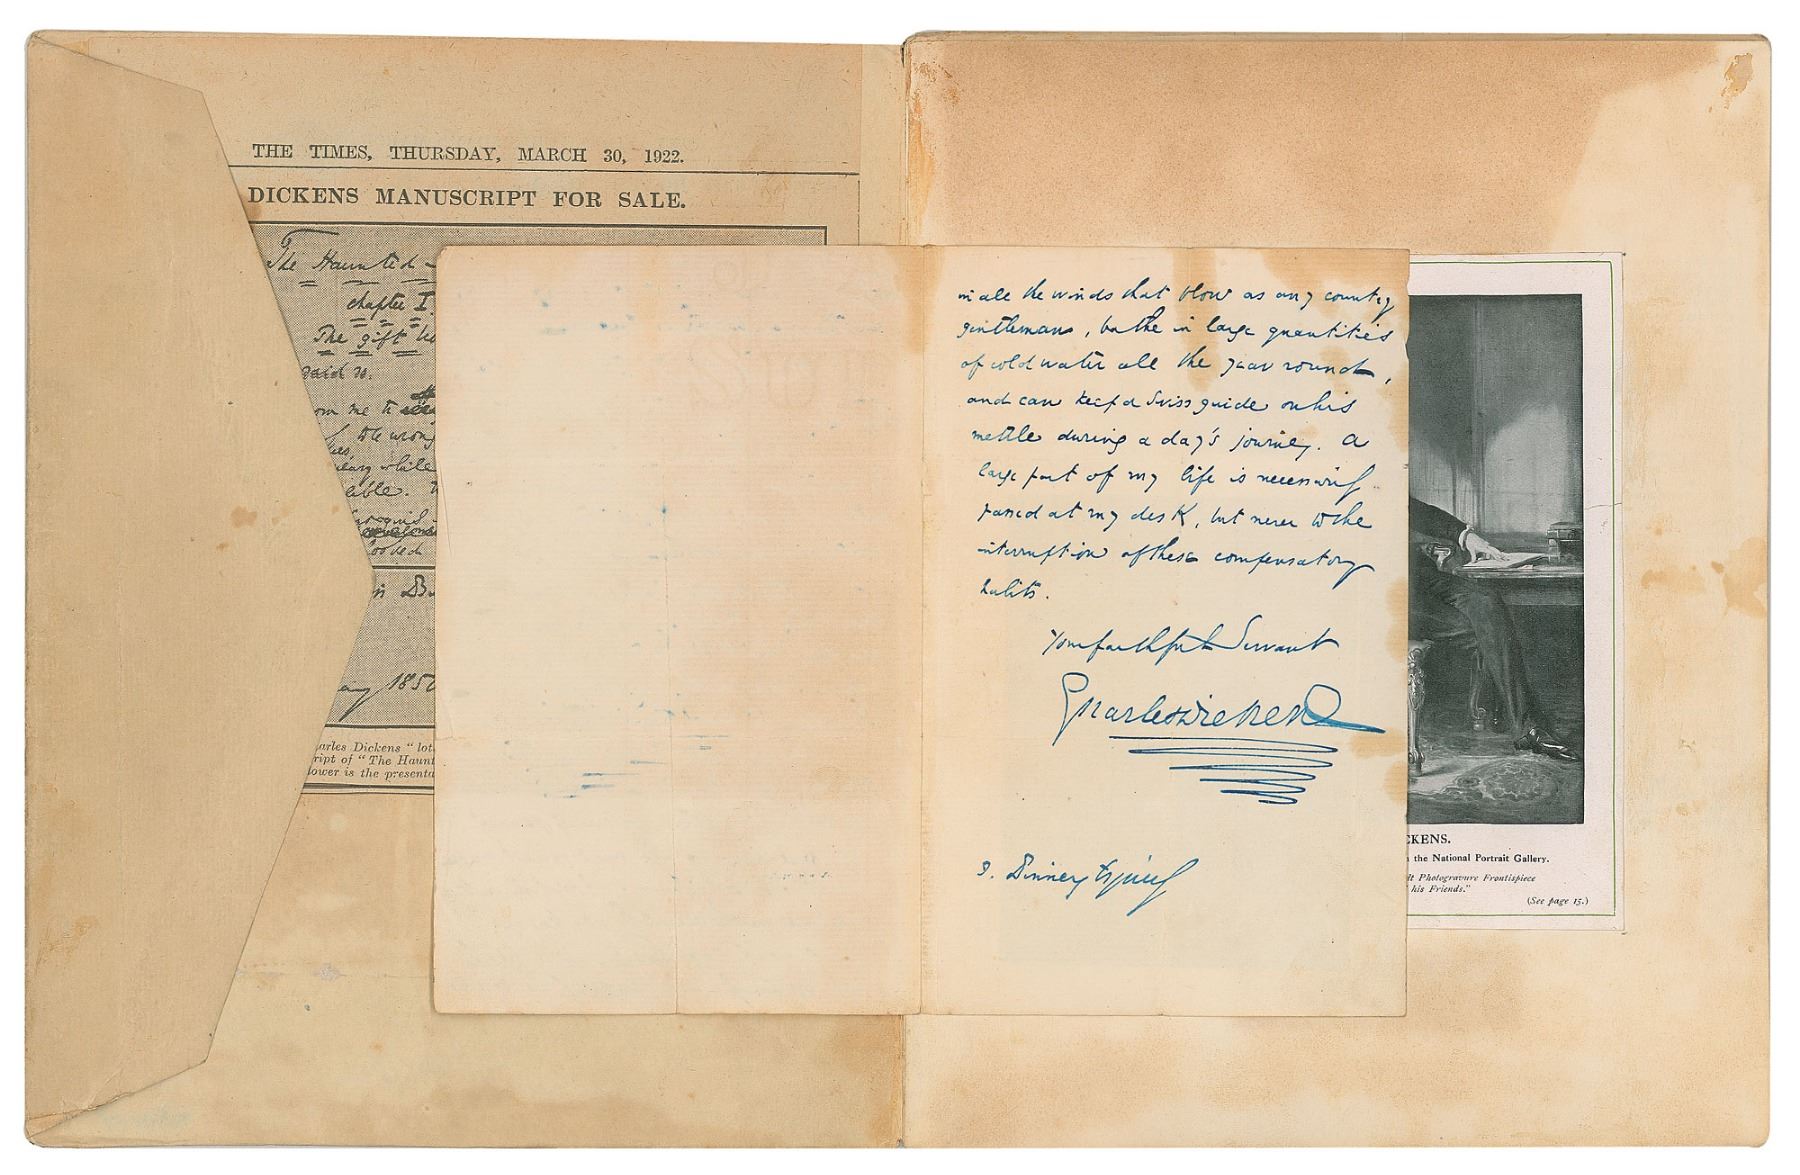 THE TIMES, THURSDAY, MARCH 30, 1922.
DICKENS MANUSCRIPT FOR SALE.
The Haunted
Chapter I.
The gift
said so.
om me to
the wrong
while
able.
looked
1850
arles Dickens " lot
ript of "The Haunt
lower is the presenta
in all the winds that blow as any country
gentleman, bathe in large quantities
of cold water all the year round,
and can keep a Swiss guide on his
mettle during a day's journey. A
large part of my life is necessarily
passed at my desk, but never to the
interruption of these compensatory
habits.
Your faithful Servant
Charles Dickens
Binney Esquire
CKENS.
n the National Portrait Gallery.
it Photogravure Frontispiece
his Friends."
(See page 15.)